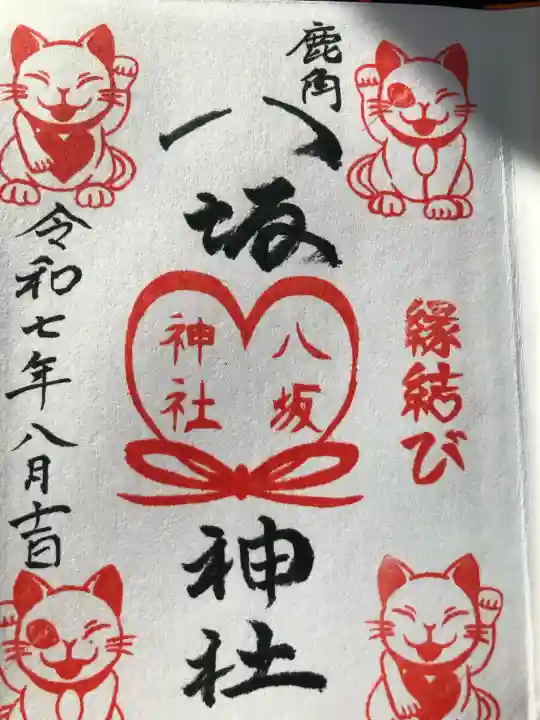 縁結び
鹿角
八坂神社
八坂
神社
令和七年八月十一日